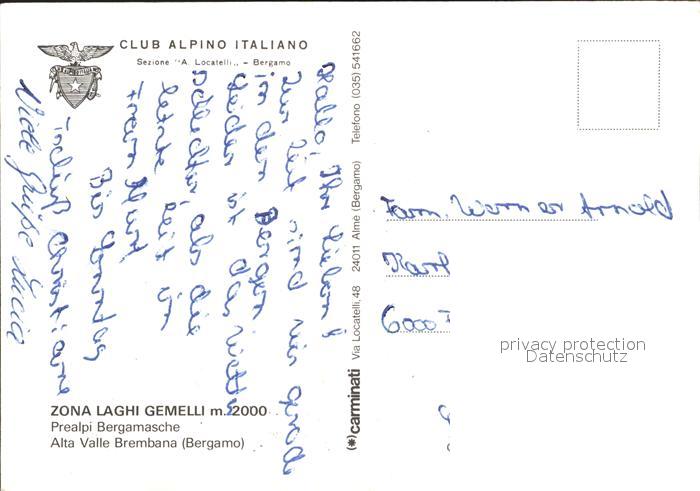 CLUB ALPINO ITALIANO
Sezione "A. Locatelli,, - Bergamo
Hallo! Ihr Lieben!
Zur Zeit sind wir gerade
in den Bergen.
Leider ist das Wetter
schlechter, als die
letzte Zeit in
Frankfurt.
Bis Sonntag
tschüß Christiane
Viele Grüße Lucia
ZONA LAGHI GEMELLI m. 2000
Prealpi Bergamasche
Alta Valle Brembana (Bergamo)
(*)carminati Via Locatelli, 48 24011 Almè (Bergamo) Telefono (035) 541662
Fam. Werner Arnold
Karl
6000
privacy protection
Datenschutz